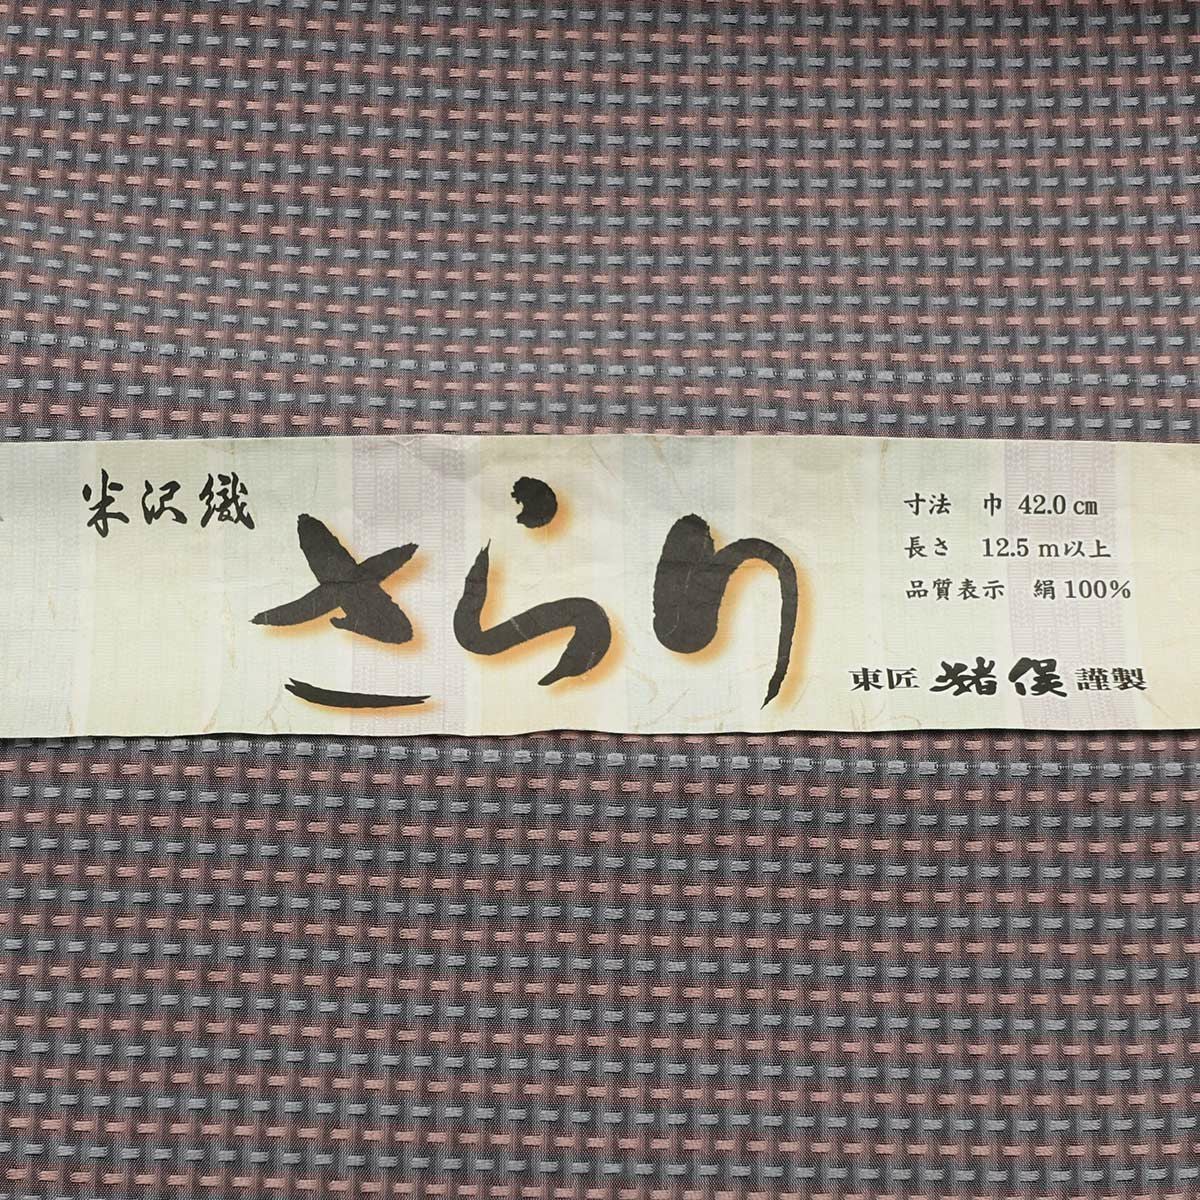 米沢織
さらり
寸法 巾 42.0㎝
長さ 12.5m以上
品質表示 絹100%
東匠 猪俣 謹製